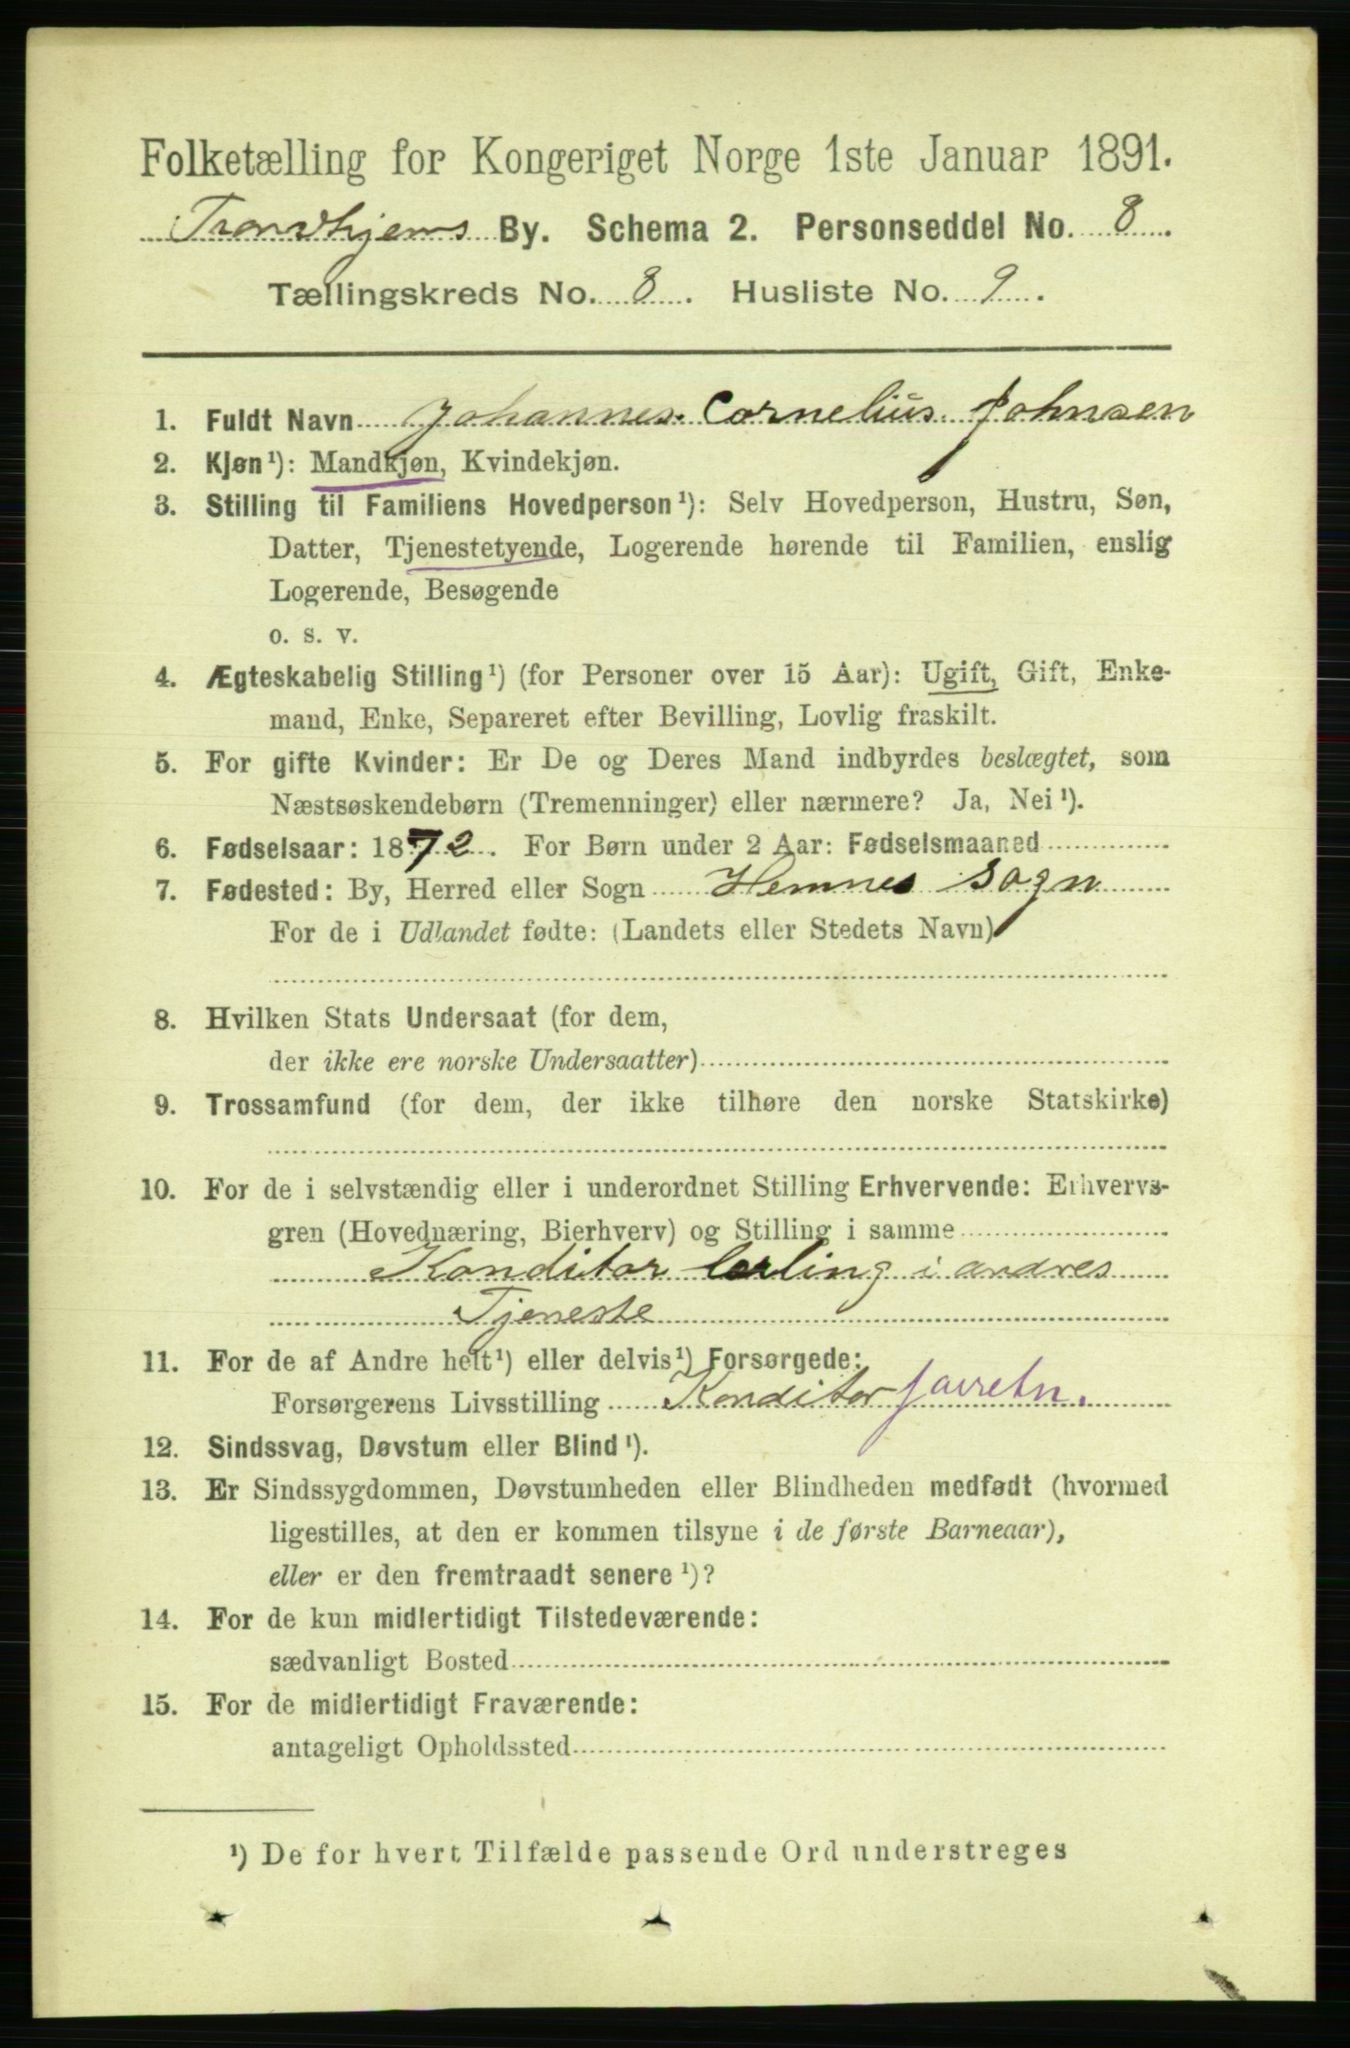 Folketælling for Kongeriget Norge 1ste Januar 1891.
Trondhjems By. Schema 2. Personseddel No. 8.
Tællingskreds No. 8. Husliste No. 9.
1. Fuldt Navn Johannes Cornelius Johnsen
2. Kjøn¹): Mandkjøn, Kvindekjøn.
3. Stilling til Familiens Hovedperson¹): Selv Hovedperson, Hustru, Søn,
Datter, Tjenestetyende, Logerende hørende til Familien, enslig
Logerende, Besøgende
o. s. v.
4. Ægteskabelig Stilling¹) (for Personer over 15 Aar): Ugift, Gift, Enke-
mand, Enke, Separeret efter Bevilling, Lovlig fraskilt.
5. For gifte Kvinder: Er De og Deres Mand indbyrdes beslægtet, som
Næstsøskendebørn (Tremenninger) eller nærmere? Ja, Nei¹).
6. Fødselsaar: 1872. For Børn under 2 Aar: Fødselsmaaned
7. Fødested: By, Herred eller Sogn Hemnes Sogn
For de i Udlandet fødte: (Landets eller Stedets Navn)
8. Hvilken Stats Undersaat (for dem,
der ikke ere norske Undersaatter)
9. Trossamfund (for dem, der ikke tilhøre den norske Statskirke)
10. For de i selvstændig eller i underordnet Stilling Erhvervende: Erhvervs-
gren (Hovednæring, Bierhverv) og Stilling i samme
Konditor lerling i andres
Tjeneste
11. For de af Andre helt¹) eller delvis¹) Forsørgede:
Forsørgerens Livsstilling Konditor
12. Sindssvag, Døvstum eller Blind¹).
13. Er Sindssygdommen, Døvstumheden eller Blindheden medfødt (hvormed
ligestilles, at den er kommen tilsyne i de første Barneaar),
eller er den fremtraadt senere¹)?
14. For de kun midlertidigt Tilstedeværende:
sædvanligt Bosted
15. For de midlertidigt Fraværende:
antageligt Opholdssted
¹) De for hvert Tilfælde passende Ord understreges